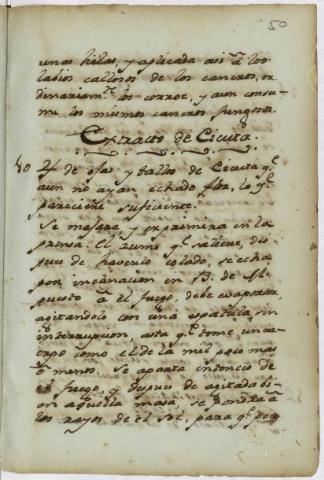 50
unas hilas, y aplicada asi â los
labios callosos de los cancros, or
dinariam.te los corroe, y aun consu-
me los mismos cancros fungosos.
Extracto de Cicuta.
40 de ojas y tallos de Cicuta q.e
aun no ayan echado flor, lo q.e
pareciere suficiente.
Se majara y exprimira en la
prensa. El zumo q.e saliere, des
pues de haverlo colado, se echa
por inclinacion en B. de M.
puesto â el fuego, debe evaporar,
agitandolo con una espatula sin
interrupcion, asta q.e tome un cu-
erpo como el de la miel poco mas
ô menos. Se aparta entonces de
el fuego, y despues de agitado bi-
en aquella masa, se pondra â
los rayos de el sol, para q.e poco